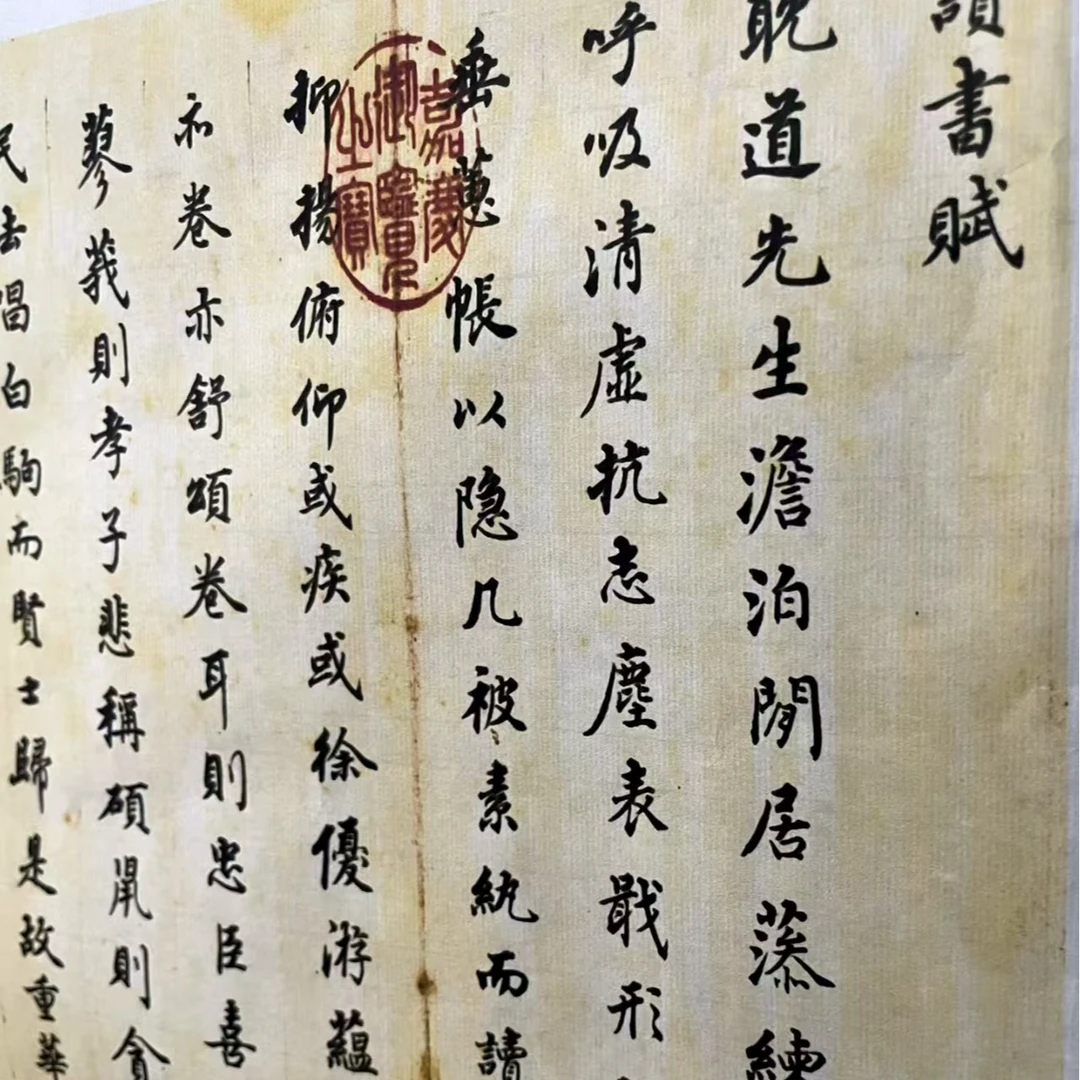 讀書賦
耽道先生澹泊閒居藻練
呼吸清虛抗志塵表戢形
垂蕙帳以隐几被素紈而讀
嘉慶御覽之寶
抑揚俯仰或疾或徐優游蘊
和卷亦舒頌卷耳則忠臣喜
蓼莪則孝子悲稱碩鼠則貪
民去唱白駒而賢士歸是故重華